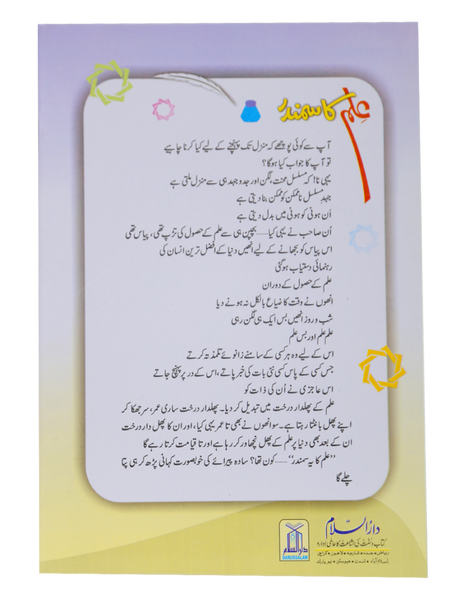 علم کا سمندر
آپ سے کوئی پوچھے کہ منزل تک پہنچنے کے لیے کیا کرنا چاہیے
تو آپ کا جواب کیا ہوگا؟
یہی نا! کہ مسلسل محنت، لگن اور جدوجہد ہی سے منزل ملتی ہے
جہدِ مسلسل ناممکن کو ممکن بنا دیتی ہے
اَن ہونی کو ہونی میں بدل دیتی ہے
اُن صاحب نے یہی کیا..... بچپن ہی سے علم کے حصول کی تڑپ تھی، پیاس تھی
اس پیاس کو بجھانے کے لیے انھیں دنیا کے افضل ترین انسان کی
رہنمائی دستیاب ہوگئی
علم کے حصول کے دوران
انھوں نے وقت کا ضیاع بالکل نہ ہونے دیا
شب و روز انھیں بس ایک ہی لگن رہی
علم، علم اور بس علم
اس کے لیے وہ ہر کسی کے سامنے زانوئے تلمذ تہ کرتے
جس کسی کے پاس کسی نئی بات کی خبر پاتے، اس کے در پر پہنچ جاتے
اس عاجزی نے اُن کی ذات کو
علم کے پھلدار درخت میں تبدیل کر دیا۔ پھلدار درخت ساری عمر، سر جھکا کر
اپنے پھل بانٹتا رہتا ہے۔ سو انھوں نے بھی تا عمر یہی کیا، اور ان کا پھل دار درخت
ان کے بعد بھی دنیا پر علم کے پھل نچھاور کر رہا ہے اور تا قیامت کرتا رہے گا
’’علم کا یہ سمندر‘‘..... کون تھا؟ سادہ پیرائے کی خوبصورت کہانی پڑھ کر ہی پتا
چلے گا
دارالسلام
کتاب و سنت کی اشاعت کا عالمی ادارہ
ریاض • جدہ • شارجہ • لاہور • کراچی
اسلام آباد • لندن • ہیوسٹن • نیو یارک
دارالسلام
DARUSSALAM